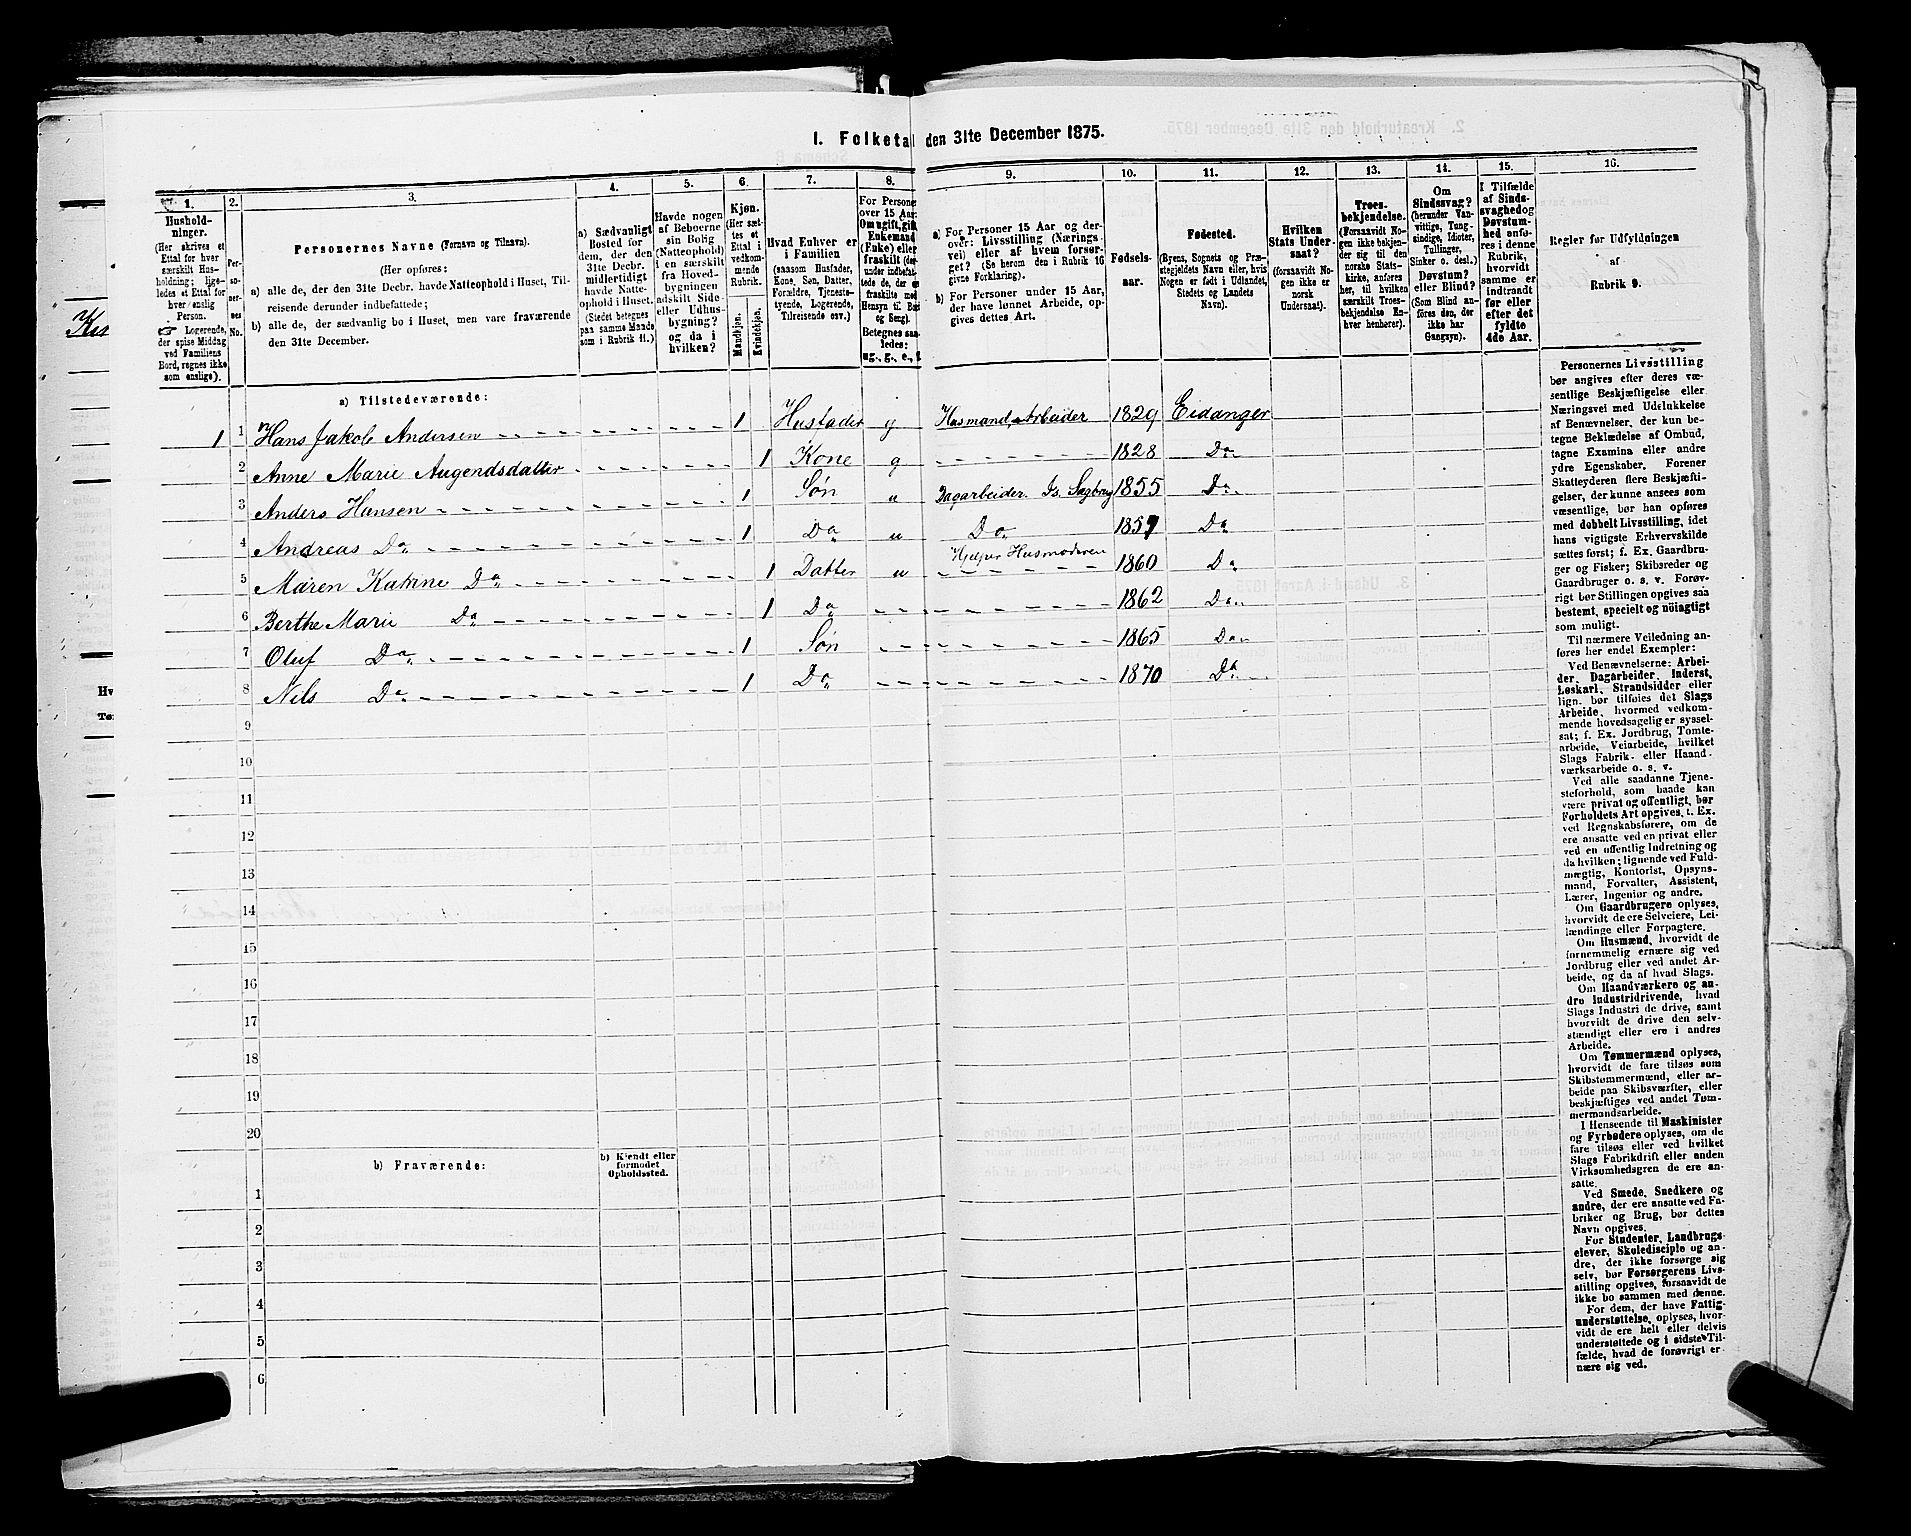 1. Folketal den 31te December 1875.
1.
Hushold-
ninger.
(Her skrives et
Ettal for hver
særskilt Hus-
holdning; lige-
ledes et Ettal for
hver enslig
Person.
☞ Logerende,
der spise Middag
ved Familiens
Bord, regnes ikke
som enslige).
2.
Per-
so-
ner-
nes
No.
3.
Personernes Navne (Fornavn og Tilnavn).
(Her opføres:
a) alle de, der den 31te Decbr. havde Natteophold i Huset, Til-
reisende derunder indbefattede;
b) alle de, der sædvanlig bo i Huset, men vare fraværende
den 31te December.
4.
a) Sædvanligt
Bosted for
dem, der den
31te Decbr.
midlertidigt
havde Natte-
ophold i Huset.
(Stedet betegnes
paa samme Maade
som i Rubrik 11.)
5.
Havde nogen
af Beboerne
sin Bolig
(Natteophold)
i en særskilt
fra Hoved-
bygningen
adskilt Side-
eller Udhus-
bygning?
og da i
hvilken?
6.
Kjøn.
(Her sæt-
tes et
Ettal i
vedkom-
mende
Rubrik.
Mandkjøn.
Kvindekjøn.
7.
Hvad Enhver er
i Familien
(saasom Husfader,
Kone, Søn, Datter,
Forældre, Tjeneste-
tyende, Logerende,
Tilreisende osv.)
8.
For Personer
over 15 Aar:
Om ugift, gift,
Enkemand
(Enke) eller
fraskilt
Betegnes saa-
ledes:
ug., g., e., f.
9.
a) For Personer 15 Aar og der-
over: Livsstilling (Nærings-
vei) eller af hvem forsør-
get? (Se herom den i Rubrik 16
givne Forklaring).
b) For Personer under 15 Aar,
der have lønnet Arbeide, op-
gives dettes Art.
10.
Fødsels-
aar.
11.
Fødested.
(Byens, Sognets og Præ-
stegjeldets Navn eller, hvis
Nogen er født i Udlandet,
Stedets og Landets
Navn).
12.
Hvilken
Stats Under-
saat?
(forsaavidt No-
gen ikke er
norsk
Undersaat).
13.
Troes-
bekjendelse.
(Forsaavidt No-
gen ikke bekjen-
der sig til den
norske Stats-
kirke, anføres
her, til hvilken
særskilt Troes-
bekjendelse En-
hver henhører).
14.
Om
Sindssvag?
(herunder Van-
vittige, Tung-
sindige, Idioter,
Tullinger,
Sinker o. desl.)
Døvstum?
eller Blind?
(Som Blind an-
føres den, der
ikke har
Gangsyn).
15.
I Tilfælde
af Sinds-
svaghed og
Døvstum-
hed anfø-
res i denne
Rubrik,
hvorvidt
samme er
indtraadt
før eller
efter det
fyldte
4de Aar.
16.
Regler før Udfyldningen
af
Rubrik 9.
a) Tilstedeværende:
1 1 Hans Jakob Andersen 1 Husfader g Husmand, Arbeider 1829 Eidanger
2 Anne Marie Augendsdatter 1 Kone g 1828 Do
3 Anders Hansen 1 Søn u Dagarbeider. Is. Sagbrug 1855 Do
4 Andreas Do 1 Do u Do 1857 Do
5 Maren Katrine Do 1 Datter u Hjelper Husmoderen 1860 Do
6 Berthe Marie Do 1 Do 1862 Do
7 Oluf Do 1 Søn 1865 Do
8 Nils Do 1 Do 1870 Do
9
10
11
12
13
14
15
16
17
18
19
20
b) Fraværende:
b) Kjendt eller
formodet
Opholdssted.
1
2
3
4
5
6
Personernes Livsstilling
bør angives efter deres væ-
sentlige Beskjæftigelse eller
Næringsvei med Udelukkelse
af Benævnelser, der kun be-
tegne Beklædelse af Ombud,
tagne Examina eller andre
ydre Egenskaber. Forener
Skatteyderen flere Beskjæfti-
gelser, der kunne ansees som
væsentlige, bør han opføres
med dobbelt Livsstilling, idet
hans vigtigste Erhvervskilde
sættes først; f. Ex. Gaardbru-
ger og Fisker; Skibsreder og
Gaardbruger o. s. v. Forøv-
rigt bør Stillingen opgives saa
bestemt, specielt og nöiagtigt
som muligt.
Til nærmere Veiledning an-
føres her endel Exempler:
Ved Benævnelserne: Arbei-
der, Dagarbeider, Inderst,
Løskarl, Strandsidder eller
lign. bør tilføies det Slags
Arbeide, hvormed vedkom-
mende hovedsagelig er syssel-
sat; f. Ex. Jordbrug, Tomte-
arbeide, Veiarbeide, hvilket
Slags Fabrik- eller Haand-
værksarbeide o. s. v.
Ved alle saadanne Tjene-
steforhold, som baade kan
være privat og offentligt, bør
Forholdets Art opgives, t. Ex.
ved Regnskabsførere, om de
ere ansatte ved en privat eller
ved en offentlig Indretning og
da hvilken; lignende ved Fuld-
mægtig, Kontorist, Opsyns-
mand, Forvalter, Assistent,
Lærer, Ingeniør og andre.
Om Gaardbrugere oplyses,
hvorvidt de ere Selveiere, Lei-
lændinge eller Forpagtere.
Om Husmænd, hvorvidt de
fornemmelig ernære sig ved
Jordbrug eller ved andet Ar-
beide, og da af hvad Slags.
Om Haandværkere og an-
dre Industridrivende, hvad
Slags Industri de drive, samt
hvorvidt de drive den selv-
stændigt eller ere i andres
Arbeide.
Om Tømmermænd oplyses,
hvorvidt de fare tilsøs som
Skibstømmermænd, eller ar-
beide paa Skibsværfter, eller
beskjæftiges ved andet Tøm-
mermandsarbeide.
I Henseende til Maskinister
og Fyrbødere oplyses, om de
fare tilsøs eller ved hvilket
Slags Fabrikdrift eller anden
Virksomhedsgren de ere an-
satte.
Ved Smede, Snedkere og
andre, der ere ansatte ved Fa-
briker og Brug, bør dettes
Navn opgives.
For Studenter, Landbrugs-
elever, Skoledisciple og an-
dre, der ikke forsørge sig
selv, bør Forsørgerens Livs-
stilling opgives, forsaavidt de
ikke bo sammen med denne.
For dem, der have Fattig-
understøttelse, oplyses, hvor-
vidt de ere helt eller delvis
understøttede og i sidste Til-
fælde, hvad de forøvrigt er-
nære sig ved.